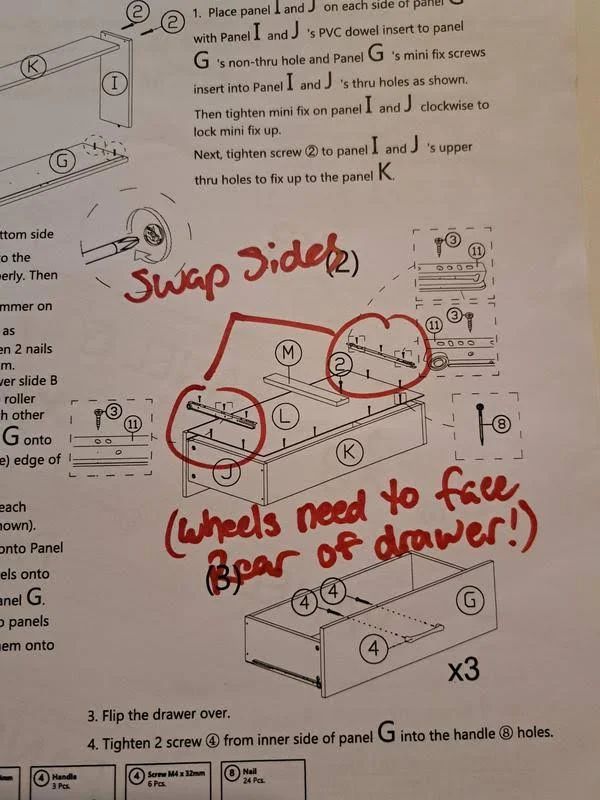 1. Place panel I and J on each side of panel G
with Panel I and J 's PVC dowel insert to panel
G 's non-thru hole and Panel G 's mini fix screws
insert into Panel I and J 's thru holes as shown.
Then tighten mini fix on panel I and J clockwise to
lock mini fix up.
Next, tighten screw ② to panel I and J 's upper
thru holes to fix up to the panel K.
2
2
K
I
G
ttom side
o the
erly. Then
mmer on
as
en 2 nails
m.
ver slide B
roller
h other
G onto
e) edge of
each
nown).
onto Panel
els onto
anel G.
o panels
em onto
Swap Sides
(2)
3
11
3
11
M
2
3
11
L
8
J
K
(wheels need to face
Rear of drawer!)
(3)
4
4
G
4
x3
3. Flip the drawer over.
4. Tighten 2 screw ④ from inner side of panel G into the handle ⑧ holes.
mm
4 Handle
3 Pcs.
4 Screw M4 x 32mm
6 Pcs.
8 Nail
24 Pcs.